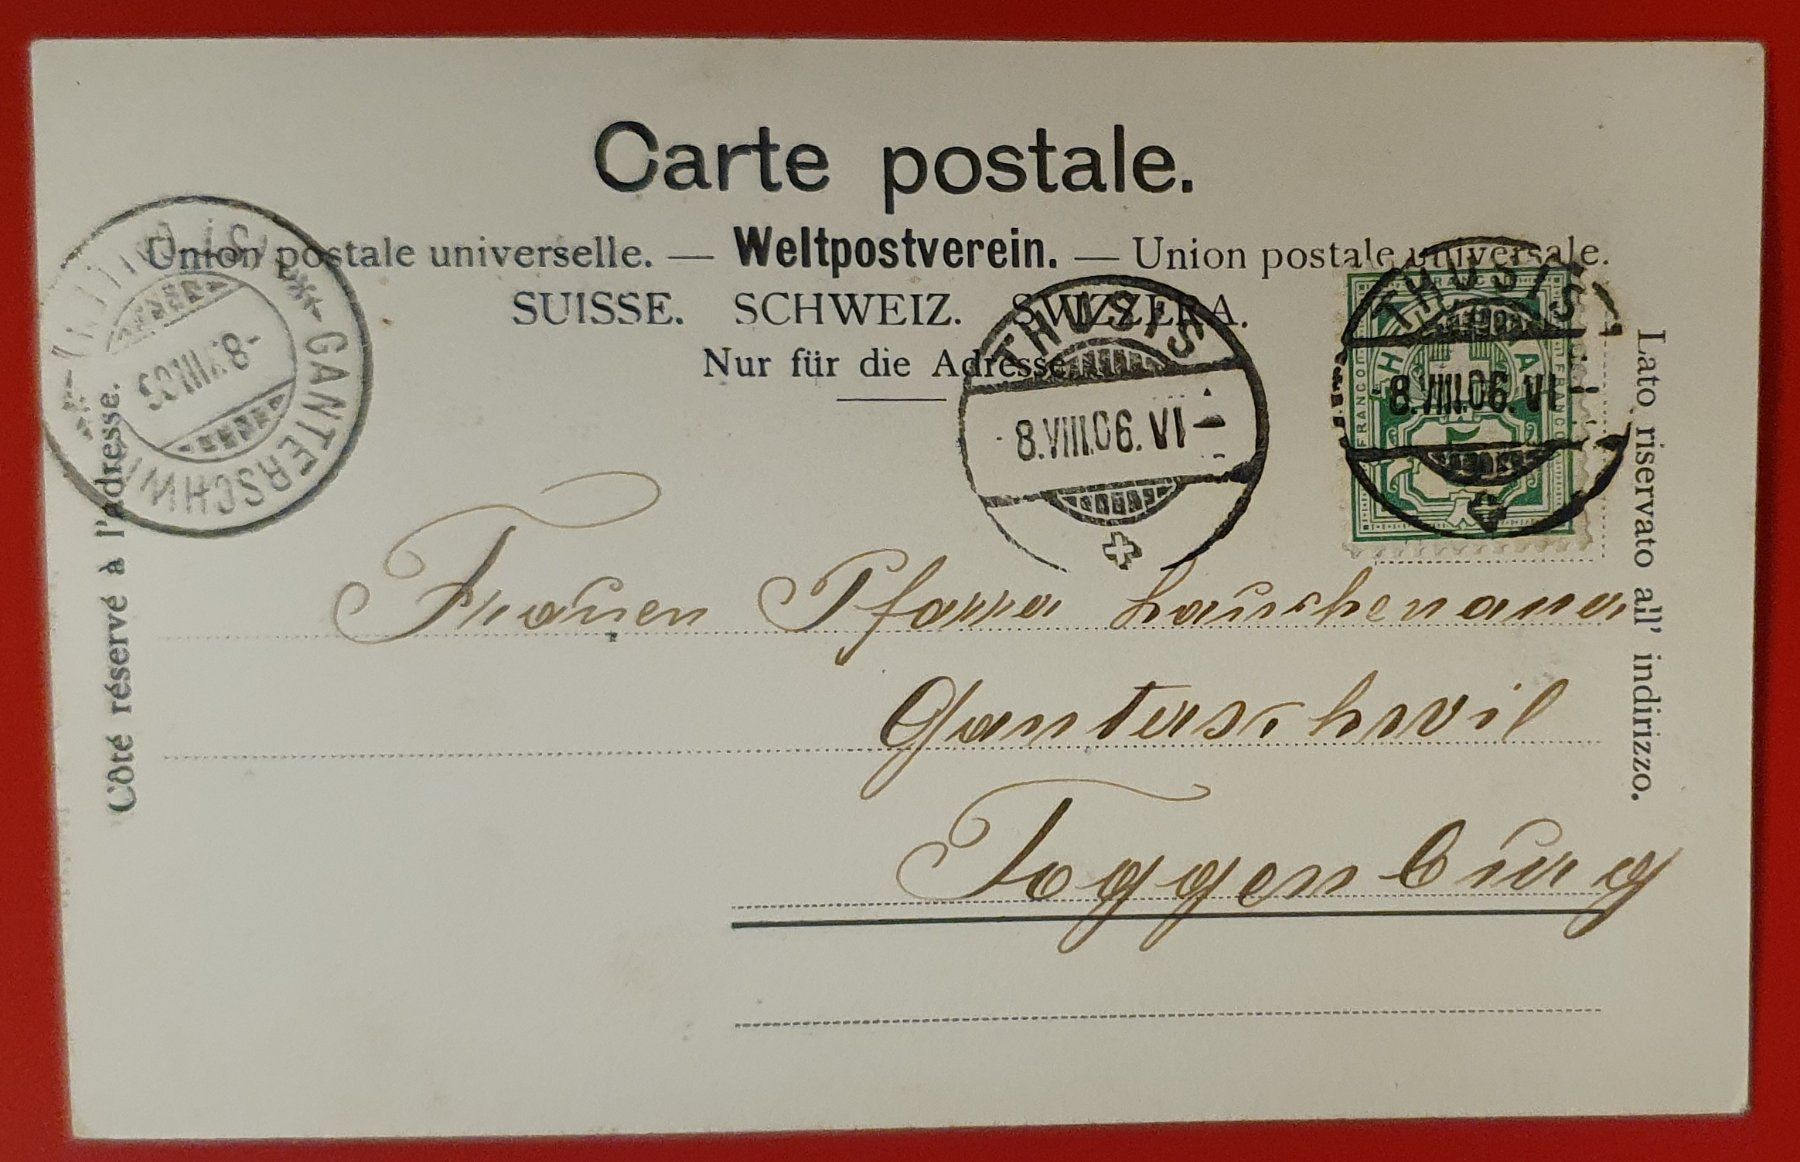 Carte postale.
Union postale universelle. — Weltpostverein. — Union postale universale.
SUISSE. SCHWEIZ. SVIZZERA.
Nur für die Adresse.
Côté réservé à l'adresse.
Lato riservato all' indirizzo.
GANTERSCHWIL
-8.VIII.06
THUSIS
8.VIII.06. VI-
THUSIS
8.VIII.06. VI-
FRANCO
FRANCO
5
Frauen Pfarra
Ganterschwil
Toggenburg